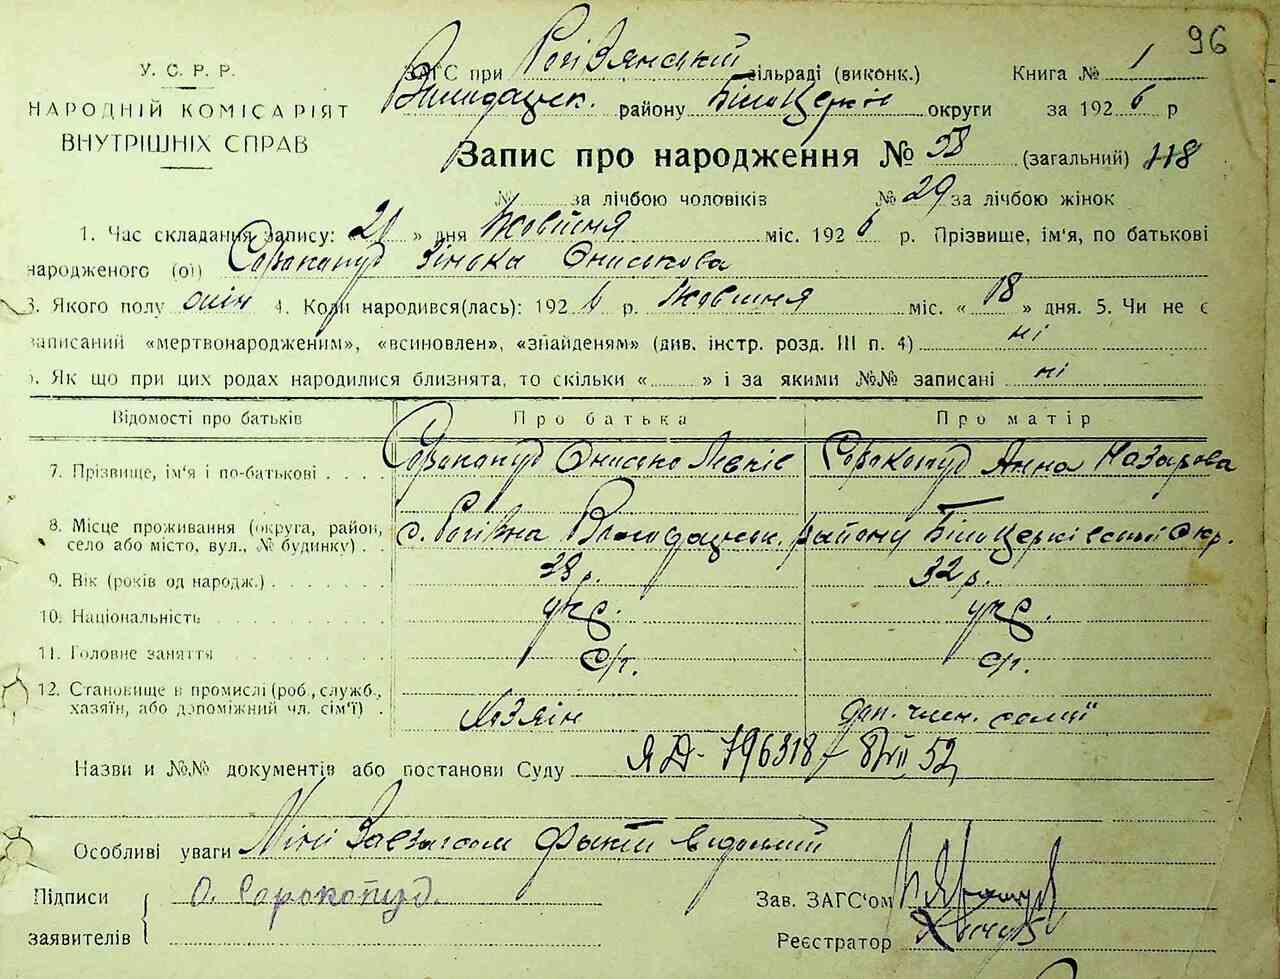 96
У. С. Р. Р.
НАРОДНІЙ КОМІСАРІЯТ
ВНУТРІШНІХ СПРАВ
ЗАГС при Рогізянській сільраді (виконк.) Книга № 1
району Білоцерків округи за 1926 р
Запис про народження № 58 (загальний) 118
№ за лічбою чоловіків № 29 за лічбою жінок
1. Час складання запису: « 21 » дня Жовтня міс. 1926 р. Прізвище, ім'я, по батькові
народженого (ої) Сорокопуд Зінька Ониськова
3. Якого полу жін 4. Коли народився(лась): 1926 р. Жовтня міс. « 18 » дня. 5. Чи не є
записаний «мертвонародженим», «всиновлен», «знайденям» (див. інстр. розд. III п. 4) ні
6. Як що при цих родах народилися близнята, то скільки « » і за якими №№ записані ні
Відомості про батьків Про батька Про матір
7. Прізвище, ім'я і по-батькові Сорокопуд Онисько Левків Сорокопуд Анна Назарова
8. Місце проживання (округа, район, село або місто, вул., № будинку) с. Рогізна Володарськ. району Білоцерківської Окр.
9. Вік (років од народж.) 38 р. 32 р.
10. Національність укр. укр.
11. Головне заняття с/г. с/г.
12. Становище в промислі (роб., служб., хазяїн, або допоміжний чл. сім'ї) Хазяїн доп. член. семії
Назви и №№ документів або постанови Суду ЯД- 796318 52
Особливі уваги Мені Завзагсом факт відомий
Підписи О. Сорокопуд. Зав. ЗАГС'ом
заявителів Реєстратор